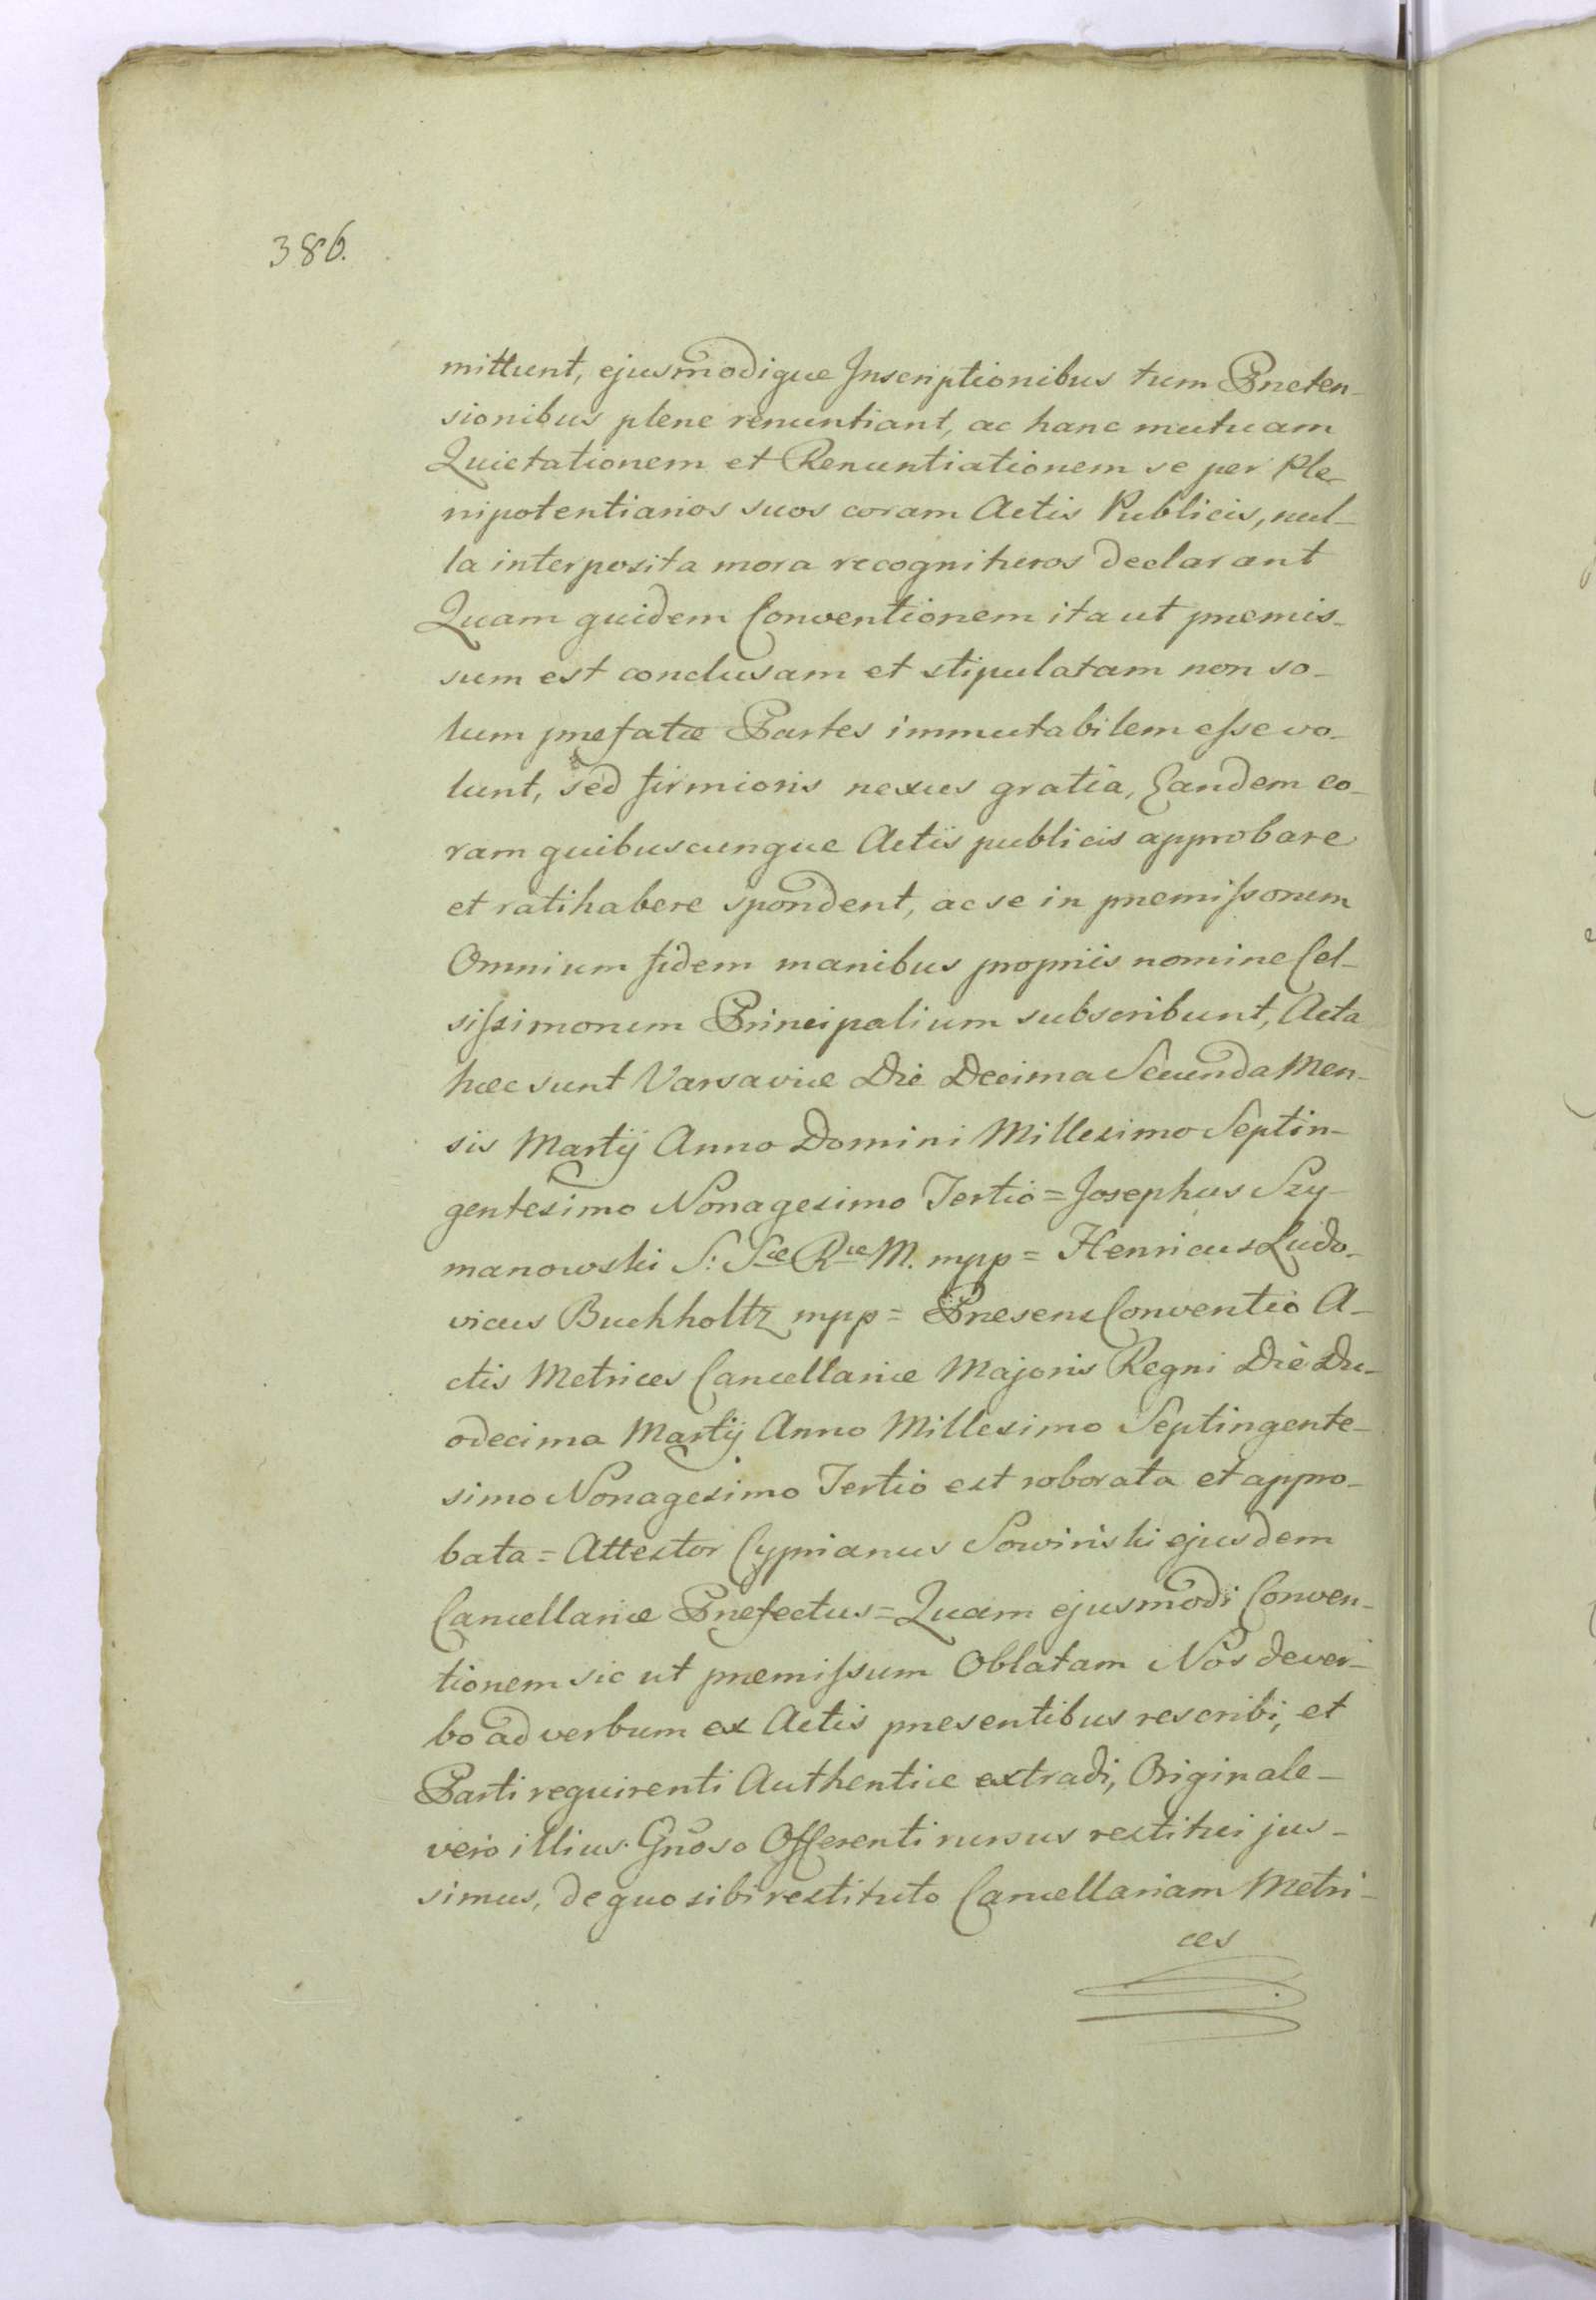 386.
mittunt, ejusmodique Inscriptionibus tum Præten-
sionibus plene renuntiant, ac hanc mutuam
Quietationem et Renuntiationem se per Ple-
nipotentiarios suos coram Actis Publicis, nul-
la interposita mora recognituros declarant
Quam quidem Conventionem ita ut præmis-
sum est conclusam et stipulatam non so-
lum præfatæ Partes immutabilem esse vo-
lunt, sed firmioris nexus gratia, Eandem co-
ram quibuscunque Actis publicis approbare
et ratihabere spondent, ac se in præmissorum
Omnium fidem manibus propriis nomine Cel-
sissimorum Principalium subscribunt, Acta
hæc sunt Varsaviæ Die Decima Secunda Men-
sis Martij Anno Domini Millesimo Septin-
gentesimo Nonagesimo Tertio = Josephus Szy-
manowski S: Sæ Ræ M. mpp = Henricus Ludo-
vicus Buchholtz mpp = Præsens Conventio A-
ctis Metrices Cancellariæ Majoris Regni Die Du-
odecima Martij Anno Millesimo Septingente-
simo Nonagesimo Tertio est roborata et appro-
bata = Attestor Cyprianus Sowiński ejusdem
Cancellariæ Præfectus = Quam ejusmodi Conven-
tionem sic ut præmissum Oblatam Nos de ver-
bo ad verbum ex Actis præsentibus rescribi, et
Parti requirenti Authentice extradi, Originale
vero illius Gnoso Offerenti rursus restitui jus-
simus, de quo sibi restituto Cancellariam Metri-
ces